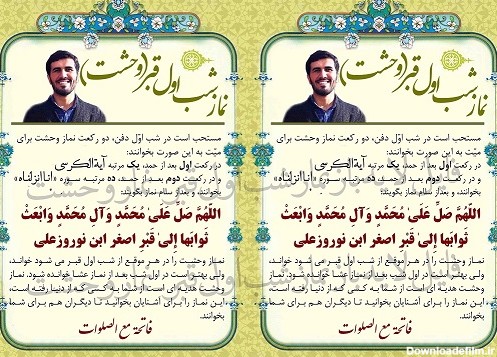 نماز شب اول قبر (وحشت)
مستحب است در شب اوّل دفن، دو رکعت نماز وحشت برای
میّت به این صورت بخوانند:
در رکعت اول بعد از حمد، یک مرتبه آیةالکرسی
و در رکعت دوم بعد از حمد، ده مرتبه سوره «اناانزلناه»
بخوانند، و بعد از سلام نماز بگویند:
اللَّهُمَّ صَلِّ عَلَىٰ مُحَمَّدٍ وَآلِ مُحَمَّدٍ وَابْعَثْ
ثَوابَها إِلىٰ قَبْرِ اصغر ابن نوروزعلی
نماز وحشت را در هر موقع از شب اول قبر می شود خواند،
ولی بهتر است در اول شب بعد از نماز عشا خوانده شود. نماز
وحشت هدیه ای است از شما به کسی که از دنیا رفته است،
این نماز را برای آشنایان بخوانید تا دیگران هم برای شما
بخوانند.
فاتحة مع الصلوات
نماز شب اول قبر (وحشت)
مستحب است در شب اوّل دفن، دو رکعت نماز وحشت برای
میّت به این صورت بخوانند:
در رکعت اول بعد از حمد، یک مرتبه آیةالکرسی
و در رکعت دوم بعد از حمد، ده مرتبه سوره «اناانزلناه»
بخوانند، و بعد از سلام نماز بگویند:
اللَّهُمَّ صَلِّ عَلَىٰ مُحَمَّدٍ وَآلِ مُحَمَّدٍ وَابْعَثْ
ثَوابَها إِلىٰ قَبْرِ اصغر ابن نوروزعلی
نماز وحشت را در هر موقع از شب اول قبر می شود خواند،
ولی بهتر است در اول شب بعد از نماز عشا خوانده شود. نماز
وحشت هدیه ای است از شما به کسی که از دنیا رفته است،
این نماز را برای آشنایان بخوانید تا دیگران هم برای شما
بخوانند.
فاتحة مع الصلوات
Downloadefilm.ir